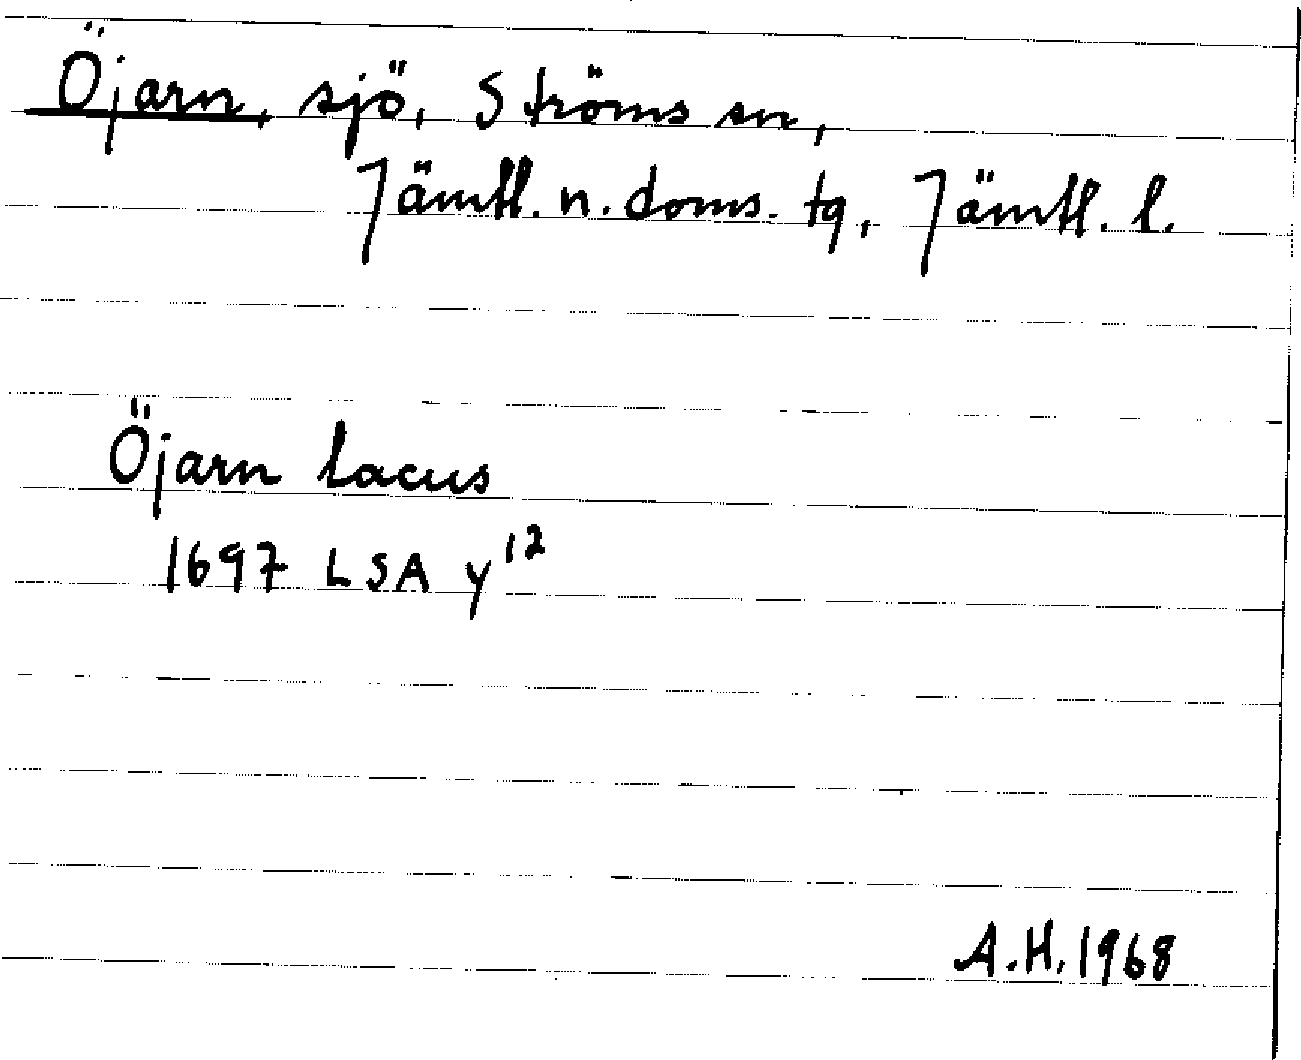 Öjarn, sjö, Ströms sn,
Jämtl. n. doms. tg, Jämtl. l.
Öjarn lacus
1697 LSA y¹²
A.H. 1968